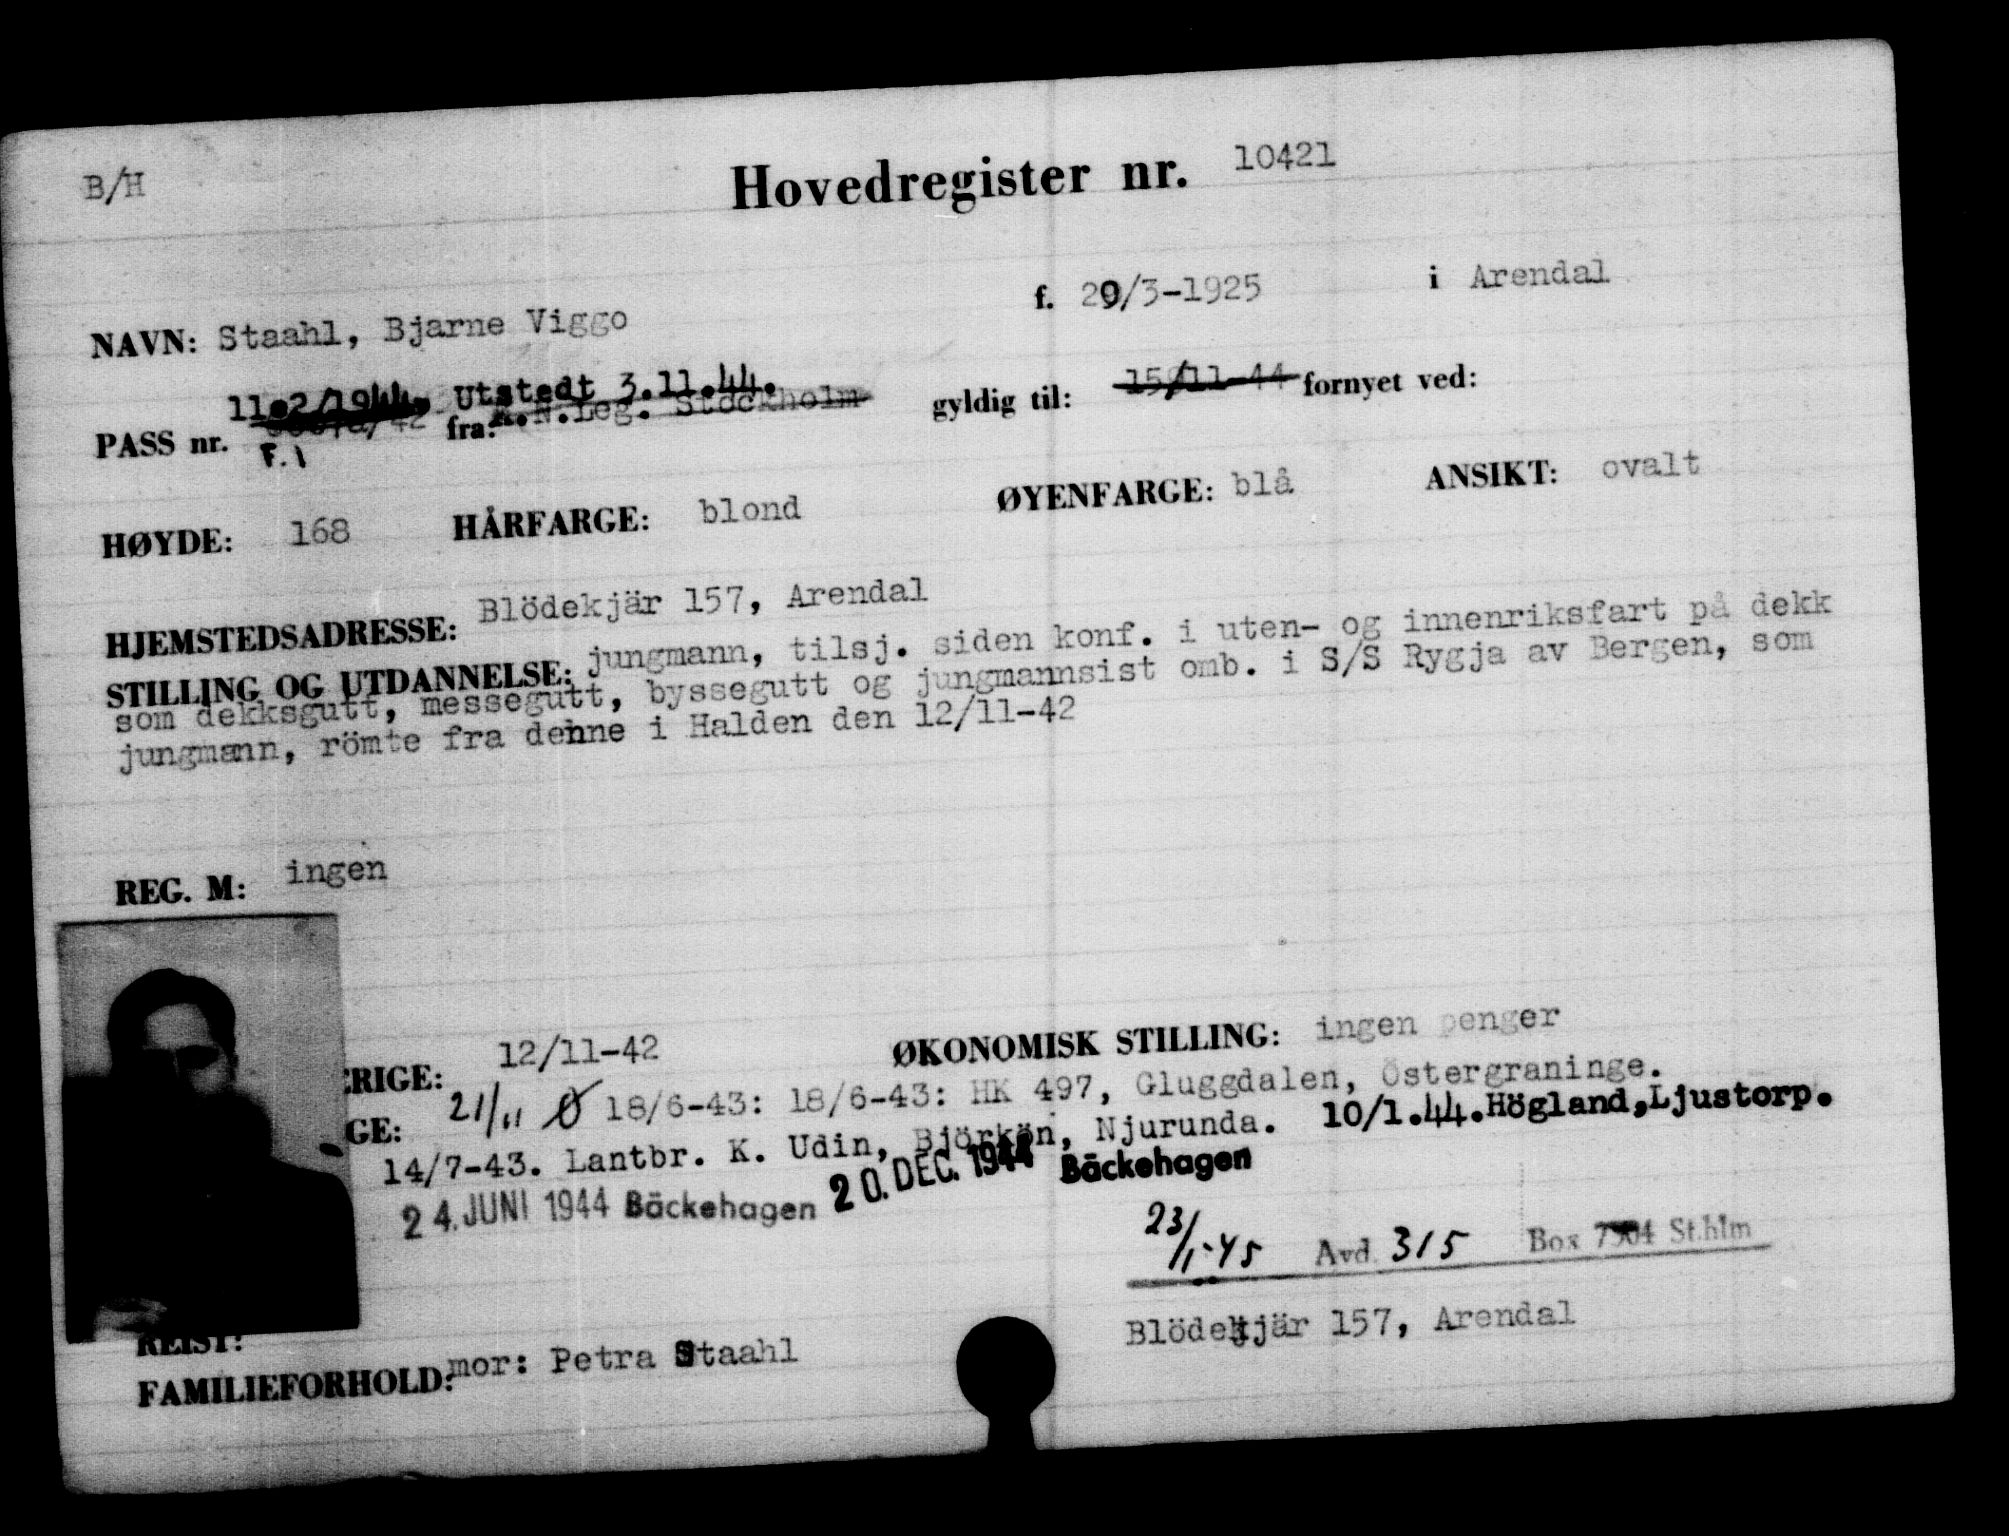 B/H
Hovedregister nr. 10421
NAVN: Staahl, Bjarne Viggo f. 29/3-1925 i Arendal
11.2/1944. Utstedt 3.11.44.
PASS nr. fra: K.N.Leg. Stockholm gyldig til: 15/11-44 fornyet ved:
F.1
HØYDE: 168 HÅRFARGE: blond ØYENFARGE: blå ANSIKT: ovalt
HJEMSTEDSADRESSE: Blödekjär 157, Arendal
STILLING OG UTDANNELSE: jungmann, tilsj. siden konf. i uten- og innenriksfart på dekk
som dekksgutt, messegutt, byssegutt og jungmannsist omb. i S/S Rygja av Bergen, som
jungmann, römte fra denne i Halden den 12/11-42
REG. M: ingen
ERIGE: 12/11-42 ØKONOMISK STILLING: ingen penger
GE: 21/11 Ø 18/6-43: 18/6-43: HK 497, Gluggdalen, Östergraninge.
14/7-43. Lantbr. K. Udin, Björkön, Njurunda. 10/1.44.Högland,Ljustorp.
24. JUNI 1944 Bäckehagen 20. DEC. 1944 Bäckehagen
23/1-45 Avd. 315 Box St.hlm
REIST:
FAMILIEFORHOLD: mor: Petra Staahl Blödekjär 157, Arendal